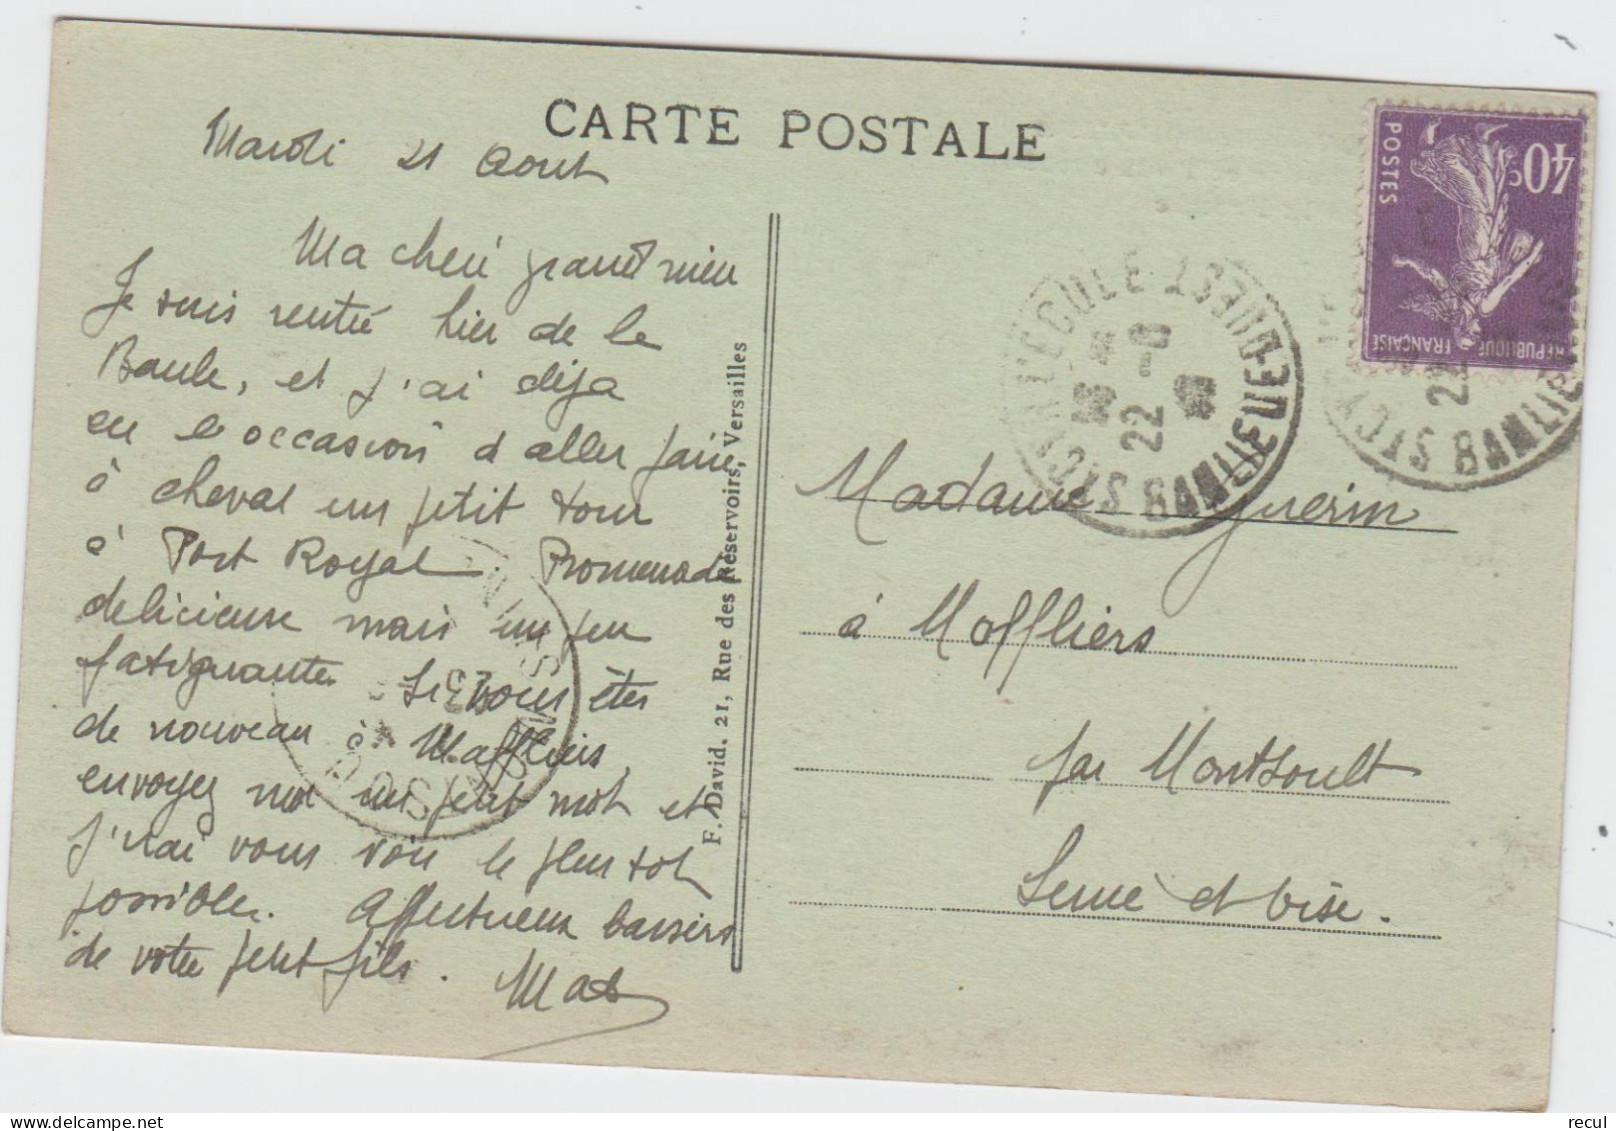 CARTE POSTALE
Mardi 21 Aout
Ma cheré grand mien
Je suis rentré hier de la
Baule, et j'ai déja
eu l'occasion d aller faire
à cheval un petit tour
à Port Royal. Promenade
delicieuse mais un peu
fatiguante. Si vous êtes
de nouveau à Maffliers,
envoyez moi un petit mot et
j'irai vous voir le plus tot
possible. Affectueux baisers
de votre petit fils.
F. David. 21, Rue des Réservoirs, Versailles
Madame Guerin
à Maffliers
par Montsoult
Seine et Oise.
POSTES
40c
REPUBLIQUE FRANÇAISE
22 -8
BANLIEUE OUEST
22
BANLIEUE
recul